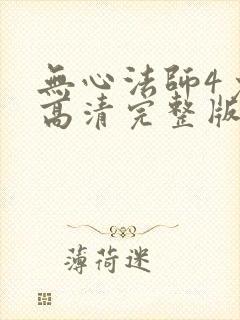 無心法師4
高清完整版
薄荷迷